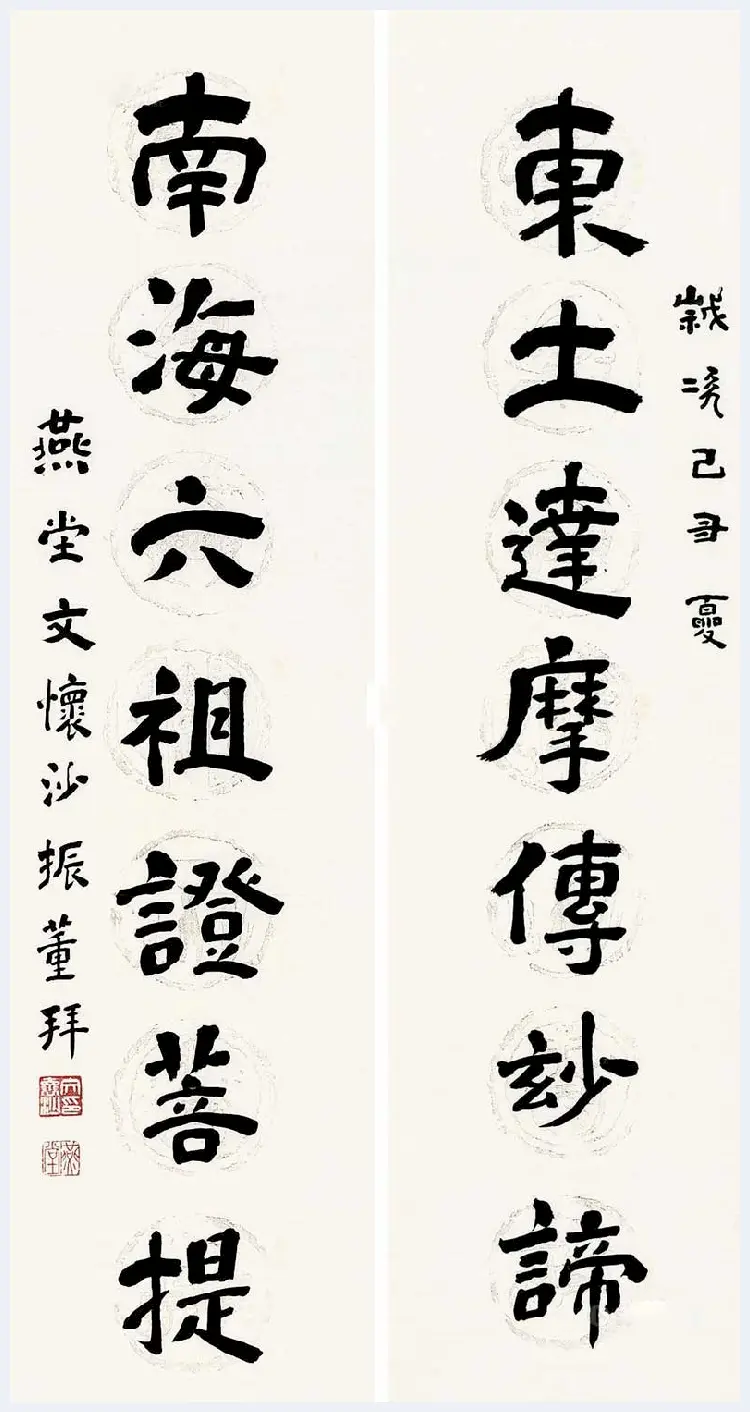 歲次己丑夏
東土達摩傳玅諦
南海六祖證菩提
燕坣文懷沙振董拜